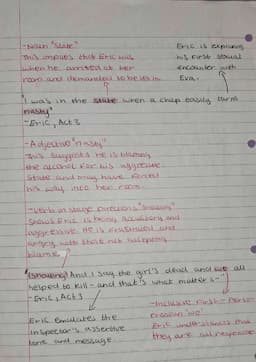 - Noun "state"
This implies that Eric was
when he arrived at her
room and demanded to be let in.
Eric is explaining
his first sexual
encounter with
Eva.
"I was in the state when a chap easily turns
nasty"
- Eric, Act 3
- Adjective "nasty"
This suggests he is blaming
the alcohol for his aggressive
state and may have forced
his way into her room.
- Verb in stage directions "shouting"
Shows Eric is being accusatory and
aggressive. He is frustrated and
angry with
blame.
(shouting) And I say the girl's dead and we all
helped to kill her - and that's what matters -"
- Eric, Act 3
Eric emulates the
Inspector's assertive
tone and message
- Inclusive, First-Person
Pronoun 'we'
Eric understands that
they are all responsible